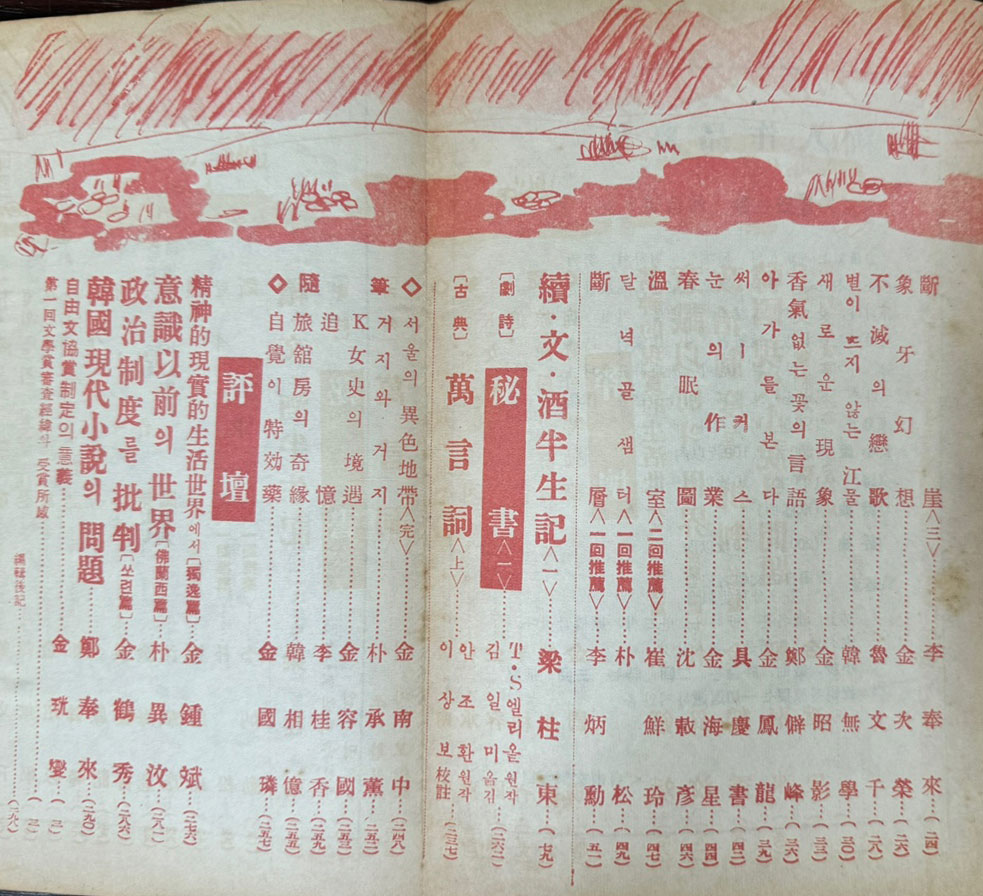 斷崖<三>……李奉來…(二四)
象牙幻想……金次榮…(二六)
不滅의戀歌……魯文千…(二八)
별이뜨지않는江물……韓無學…(三〇)
새로운現象……金昭影
香氣없는꽃의言語……鄭僻峰…(三六)
아가를본다……金鳳龍…(三九)
써ー커스……具慶書…(四二)
눈의作業……金海星…(四四)
春眠圖……沈 彦…(四六)
溫室<二回推薦>……崔鮮玲…(四七)
달녁골샘터<一回推薦>……朴松…(四九)
斷層<一回推薦>……李炳勳…(五一)
續・文・酒半生記<一>……梁柱東…(七九)
[劇詩]
秘書<一>……T・S엘리옽원작
김일미옮김…(二六二)
[古典]
萬言詞<上>……안조환원작
이상보校註…(二三七)
◇隨筆◇
서울의異色地帶<完>……金南中…(二四八)
거지와거지……朴承薰…(二五二)
K女史의境遇……金容國…(二五三)
追憶……李桂香
旅舘房의奇緣……韓相億…(二五五)
自覺이特効藥……金國璘…(二五七)
評壇
精神的現實的生活世界에서[獨逸篇]……金鍾斌…(二七六)
意識以前의世界[佛蘭西篇]……朴異汶…(二八一)
政治制度를批判[쏘련篇]……金鶴秀…(二八六)
韓國現代小說의問題……鄭奉來…(二九〇)
自由文協賞制定의意義……金珖燮
第一回文學賞審査經緯와受賞所感……
編輯後記……(二九八)